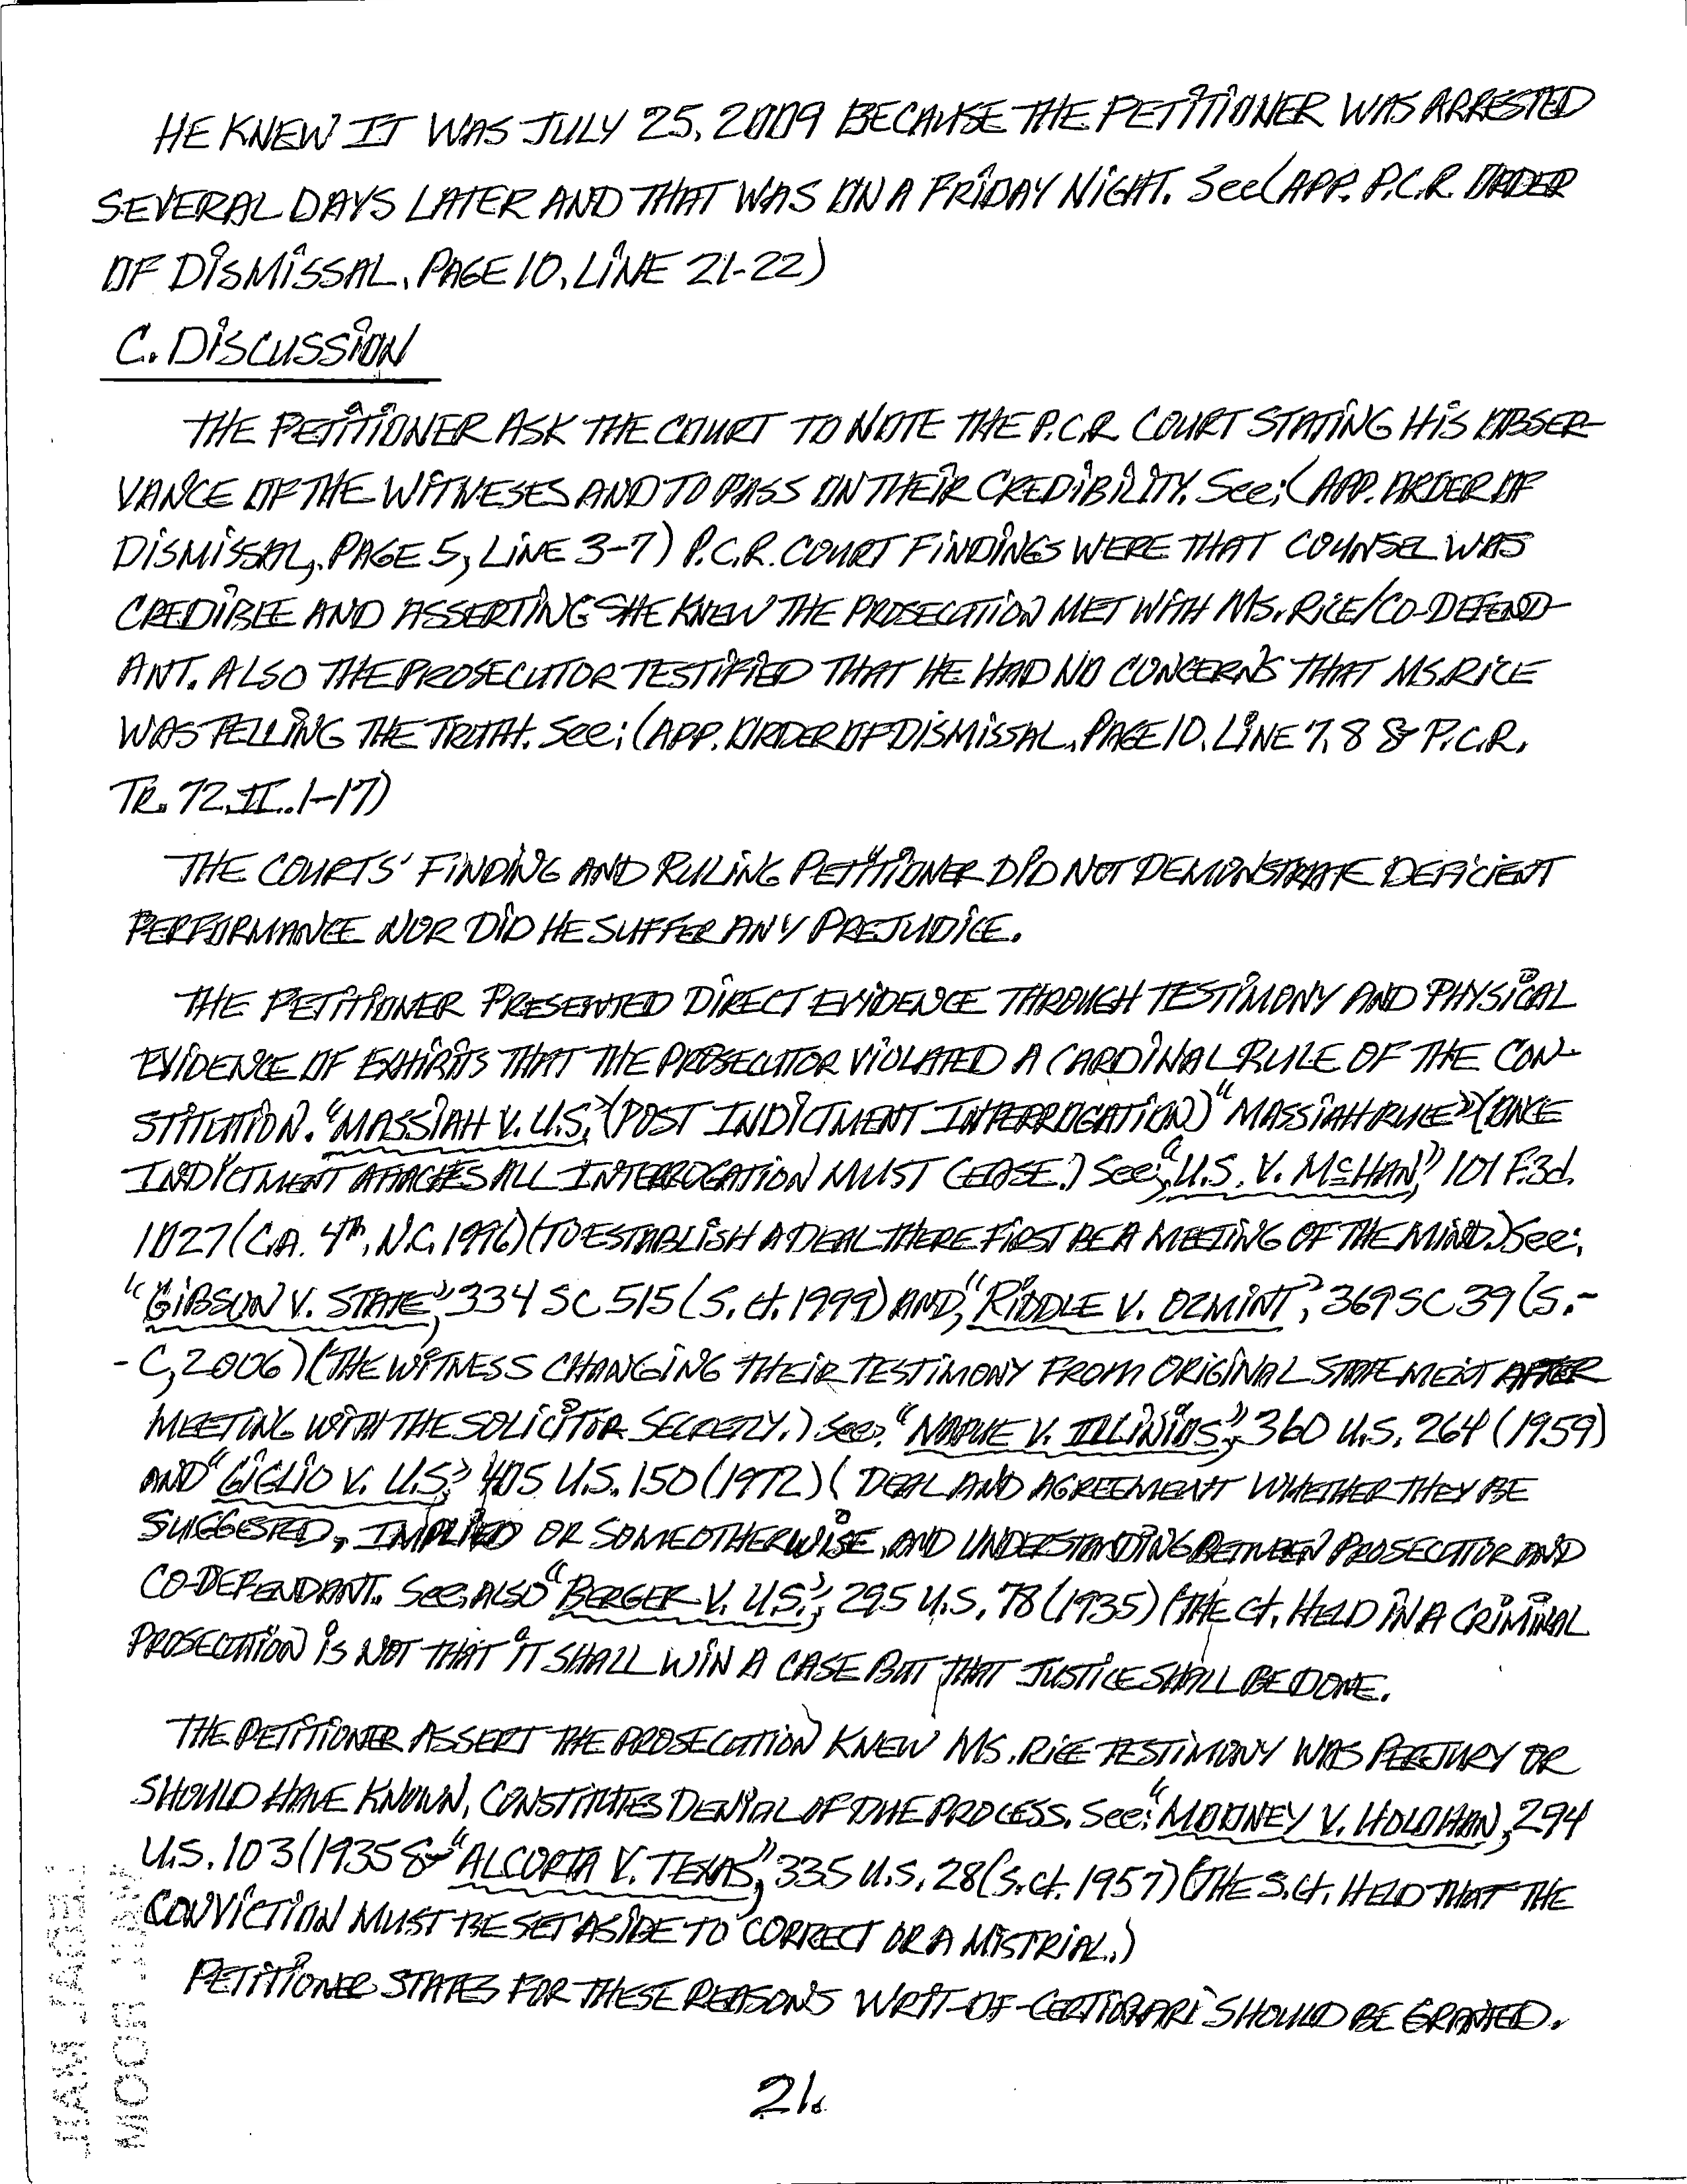 HE KNEW IT WAS JULY 25, 2009 BECAUSE THE PETITIONER WAS ARRESTED
SEVERAL DAYS LATER AND THAT WAS ON A FRIDAY NIGHT. See(APP. P.C.R. ORDER
OF DISMISSAL, PAGE 10, LINE 21-22)
C. DISCUSSION
THE PETITIONER ASK THE COURT TO NOTE THE P.C.R. COURT STATING HIS OBSER-
VANCE OF THE WITNESES AND TO PASS ON THEIR CREDIBILITY. See;(APP. ORDER OF
DISMISSAL, PAGE 5, LINE 3-7) P.C.R. COURT FINDINGS WERE THAT COUNSEL WAS
CREDIBLE AND ASSERTING SHE KNEW THE PROSECUTION MET WITH MS. RICE/CO-DEFEND-
ANT. ALSO THE PROSECUTOR TESTIFIED THAT HE HAD NO CONCERNS THAT MS. RICE
WAS TELLING THE TRUTH. See;(APP. ORDER OF DISMISSAL, PAGE 10, LINE 7, 8 & P.C.R.
TR. 72, II.. 1-17)
THE COURTS' FINDING AND RULING PETITIONER DID NOT DEMONSTRATE DEFICIENT
PERFORMANCE NOR DID HE SUFFER ANY PREJUDICE.
THE PETITIONER PRESENTED DIRECT EVIDENCE THROUGH TESTIMONY AND PHYSICAL
EVIDENCE OF EXHIBITS THAT THE PROSECUTOR VIOLATED A CARDINAL RULE OF THE CON-
STITUTION. "MASSIAH V. U.S," (POST INDICTMENT INTERROGATION) "MASSIAH RULE" (ONCE
INDICTMENT ATTACHES ALL INTERROGATION MUST CEASE.) See; "U.S. V. McHAN," 101 F.3d.
1027 (C.A. 4th, N.C. 1996) (TO ESTABLISH A DEAL THERE FIRST BE A MEETING OF THE MIND.) See;
"GIBSON V. STATE," 334 SC 515 (S. Ct. 1999) AND, "RIDDLE V. OZMINT", 369 SC 39 (S.-
-C, 2006) (THE WITNESS CHANGING THEIR TESTIMONY FROM ORIGINAL STATEMENT AFTER
MEETING WITH THE SOLICITOR SECRETLY.) See: "NAPUE V. ILLINIOS", 360 U.S. 264 (1959)
AND "GIGLIO V. U.S." 405 U.S. 150 (1972) ( DEAL AND AGREEMENT WHETHER THEY BE
SUGGESTED, IMPLIED OR SOMEOTHERWISE, AND UNDERSTANDING BETWEEN PROSECUTOR AND
CO-DEFENDANT. See, ALSO "BERGER V. U.S.", 295 U.S. 78 (1935) (THE Ct, HELD IN A CRIMINAL
PROSECUTION IS NOT THAT IT SHALL WIN A CASE BUT THAT JUSTICE SHALL BE DONE.
THE PETITIONER ASSERT THE PROSECUTION KNEW MS. RICE TESTIMONY WAS PERJURY OR
SHOULD HAVE KNOWN, CONSTITUTES DENIAL OF DUE PROCESS. See: "MOONEY V. HOLOHAN, 294
U.S. 103 (1935 & "ALCORTA V. TEXAS," 335 U.S. 28 (S. Ct. 1957) (THE S. Ct. HELD THAT THE
CONVICTION MUST BE SET ASIDE TO CORRECT OR A MISTRIAL.)
PETITIONER STATES FOR THESE REASONS WRIT-OF-CERTIORARI SHOULD BE GRANTED.
21.
MAIL
ROOM